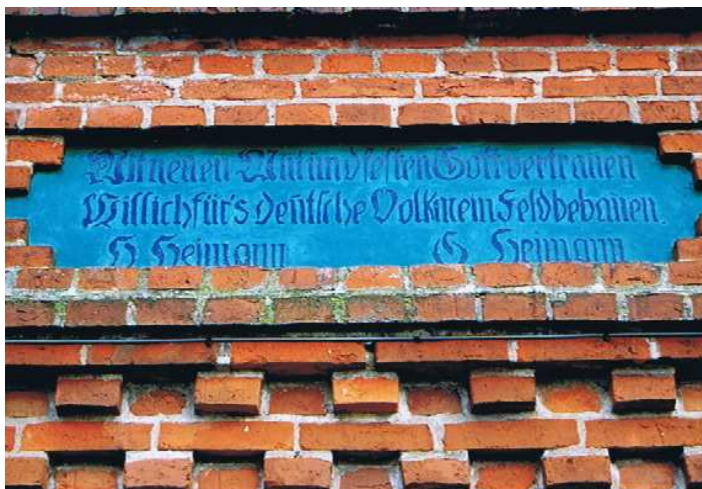 Mit neuen Mut und festen Gottvertrauen
Will ich für's deutsche Volk mein Feld bebauen.
H Heimann G Heimann